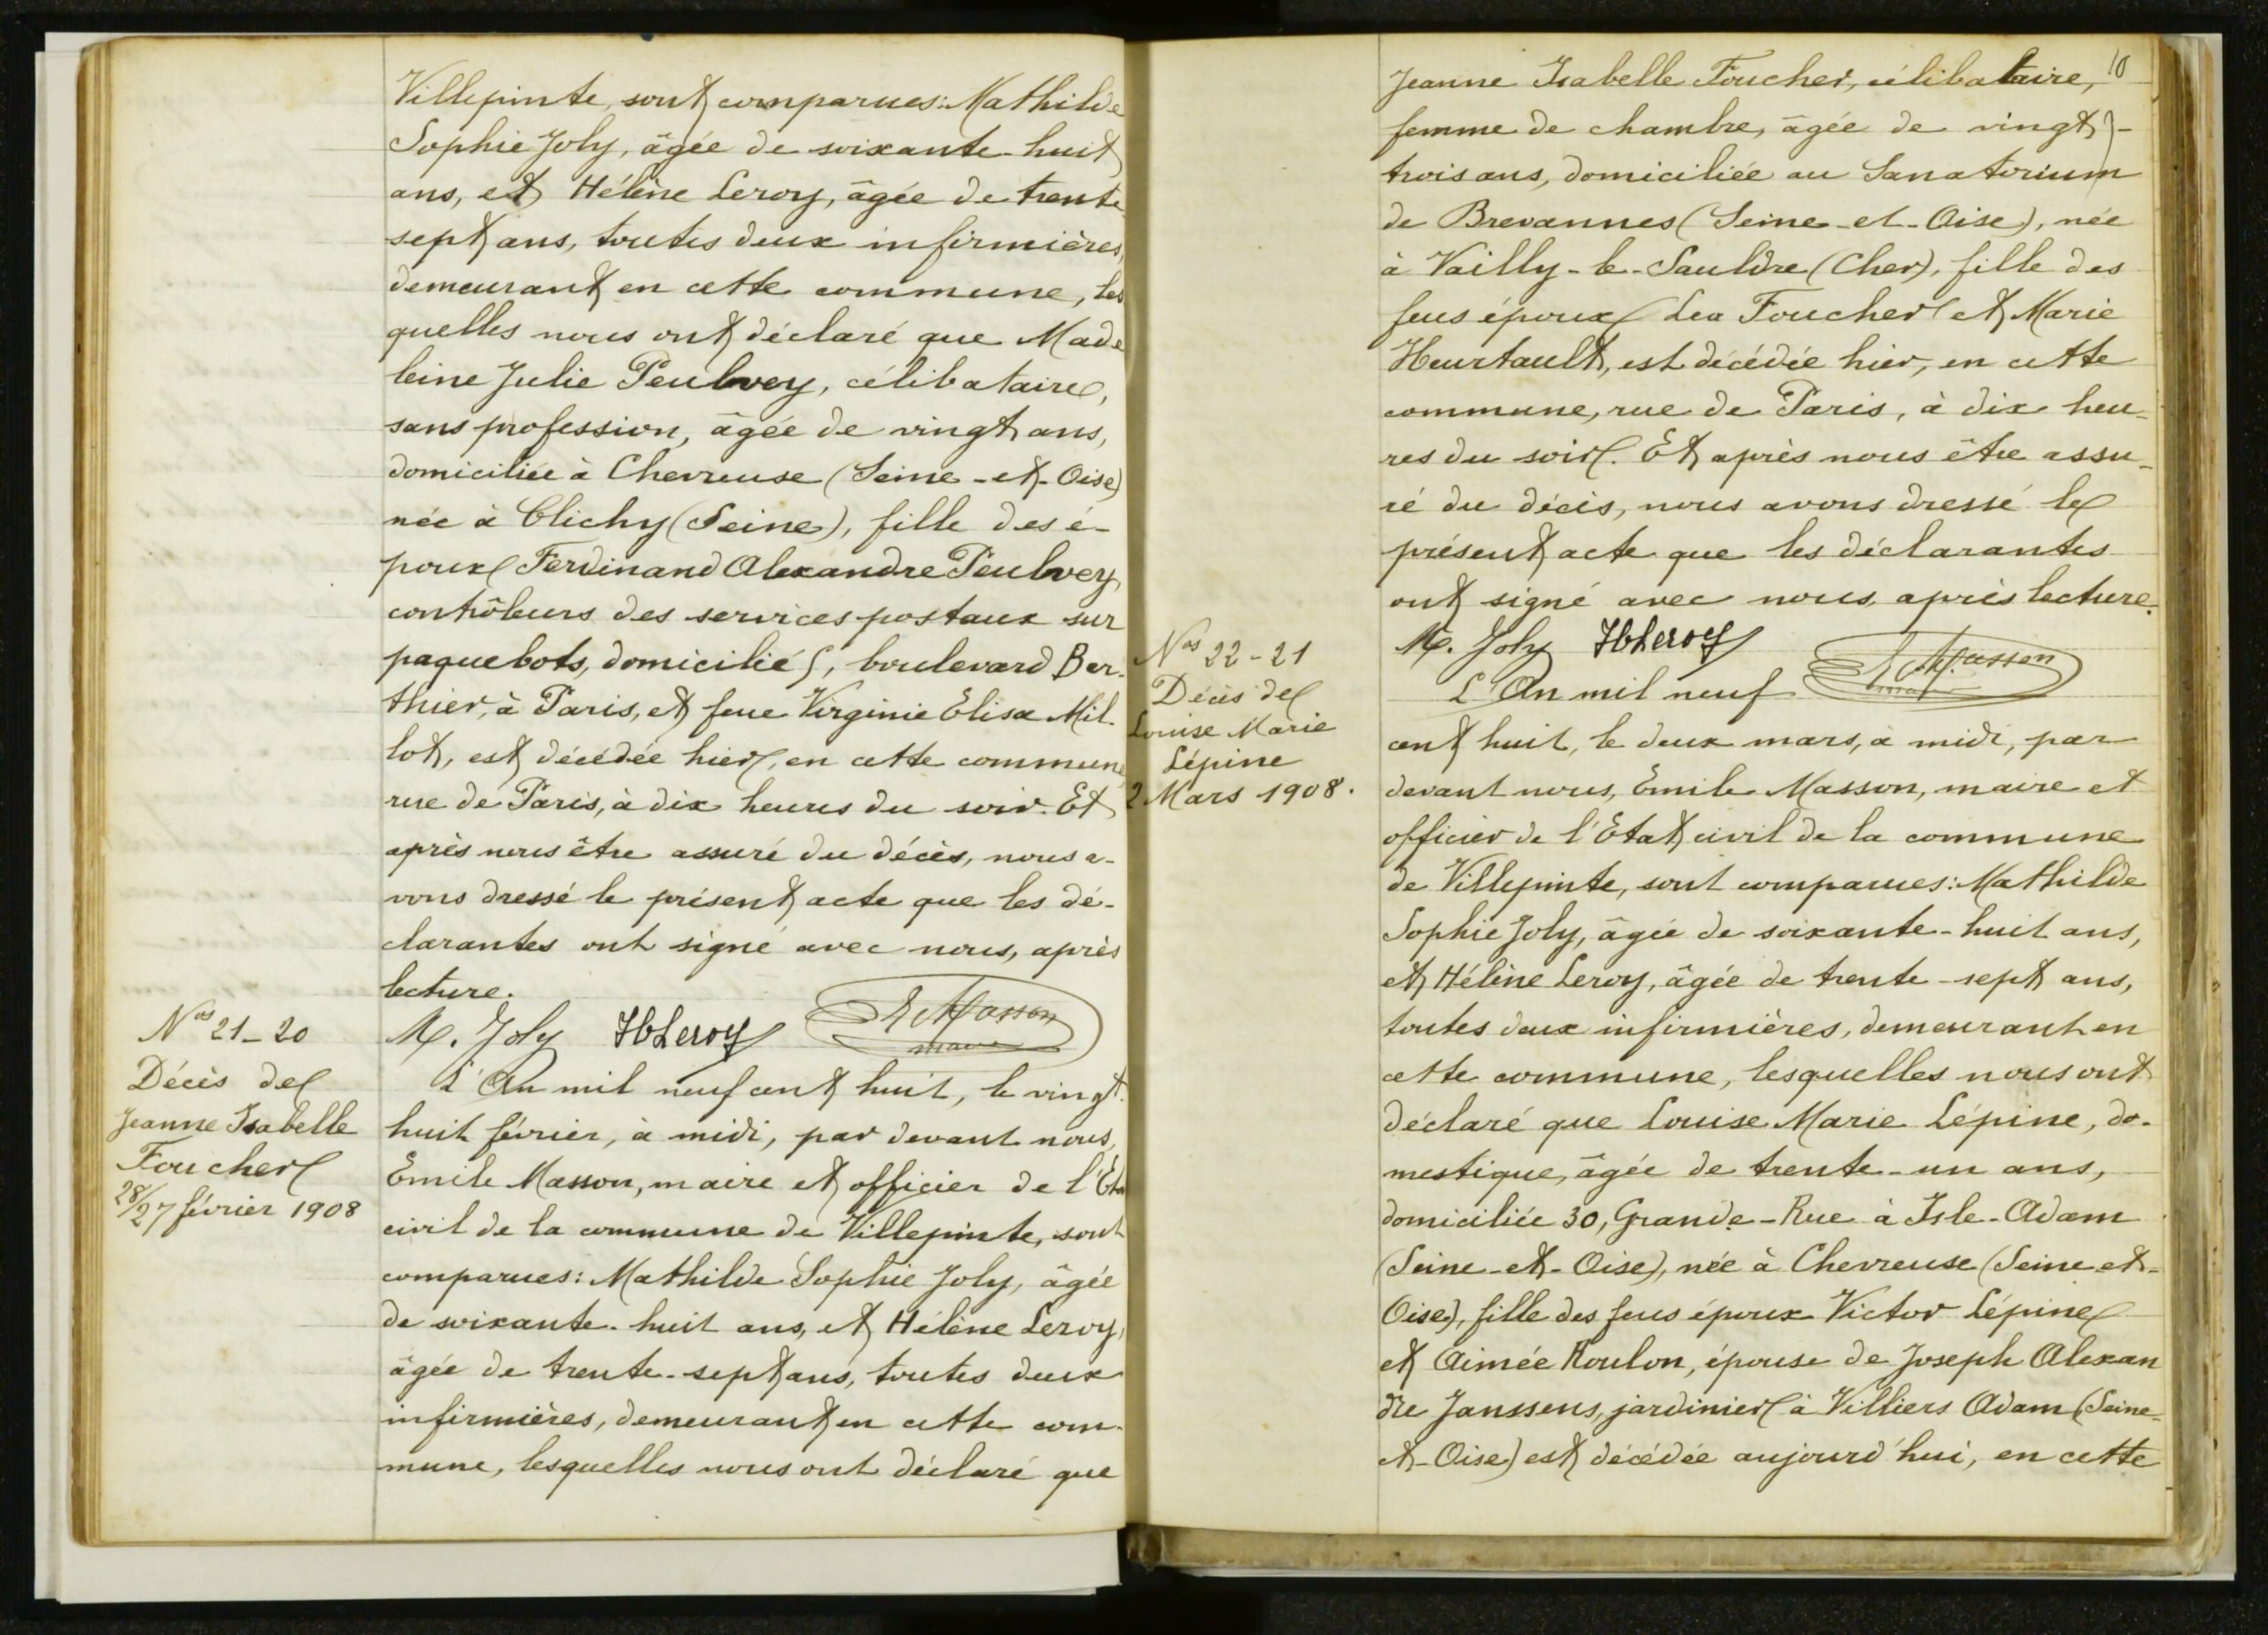 Villepinte, sont comparues: Mathilde
Sophie Joly, âgée de soixante-huit
ans, et Hélène Leroy, âgée de trente
sept ans, toutes deux infirmières,
demeurant en cette commune, les
quelles nous ont déclaré que Made
leine Julie Peulvey, célibataire,
sans profession, âgée de vingt ans,
domiciliée à Chevreuse (Seine-et-Oise)
née à Clichy (Seine), fille des é-
poux Ferdinand Alexandre Peulvey,
contrôleurs des services postaux sur
paquebots, domicilié 5, boulevard Ber-
thier, à Paris, et feue Virginie Elisa Mil-
lot, est décédée hier, en cette commune
rue de Paris, à dix heures du soir. Et
après nous être assuré du décès, nous a-
vons dressé le présent acte que les dé-
clarantes ont signé avec nous, après
lecture.
M. Joly HLeroy E Masson
maire
Nos 21-20
Décès de
Jeanne Isabelle
Foucher
28/27 février 1908
L'An mil neuf cent huit, le vingt-
huit février, à midi, par devant nous,
Emile Masson, maire et officier de l'Eta
civil de la commune de Villepinte, sont
comparues: Mathilde Sophie Joly, âgée
de soixante-huit ans, et Hélène Leroy,
âgée de trente-sept ans, toutes deux
infirmières, demeurant en cette com-
mune, lesquelles nous ont déclaré que
10
Jeanne Isabelle Foucher, célibataire,
femme de chambre, âgée de vingt-
trois ans, domiciliée au Sanatorium
de Brevannes (Seine-et-Oise), née
à Vailly-le-Sauldre (Cher), fille des
feus époux Lea Foucher et Marie
Heurtault, est décédée hier, en cette
commune, rue de Paris, à dix heu-
res du soir. Et après nous être assu-
ré du décès, nous avons dressé le
présent acte que les déclarantes
ont signé avec nous, après lecture.
M. Joly HLeroy E Masson
maire
Nos 22-21
Décès de
Louise Marie
Lépine
2 Mars 1908.
L'An mil neuf
cent huit, le deux mars, à midi, par
devant nous, Emile Masson, maire et
officier de l'Etat civil de la commune
de Villepinte, sont comparues: Mathilde
Sophie Joly, âgée de soixante-huit ans,
et Hélène Leroy, âgée de trente-sept ans,
toutes deux infirmières, demeurant en
cette commune, lesquelles nous ont
déclaré que Louise Marie Lépine, do-
mestique, âgée de trente-un ans,
domiciliée 30, Grande-Rue à Isle-Adam
(Seine-et-Oise), née à Chevreuse (Seine-et-
Oise), fille des feus époux Victor Lépine
et Aimée Roulon, épouse de Joseph Alexan
dre Janssens, jardinier à Villiers Adam (Seine-
et-Oise) est décédée aujourd'hui, en cette